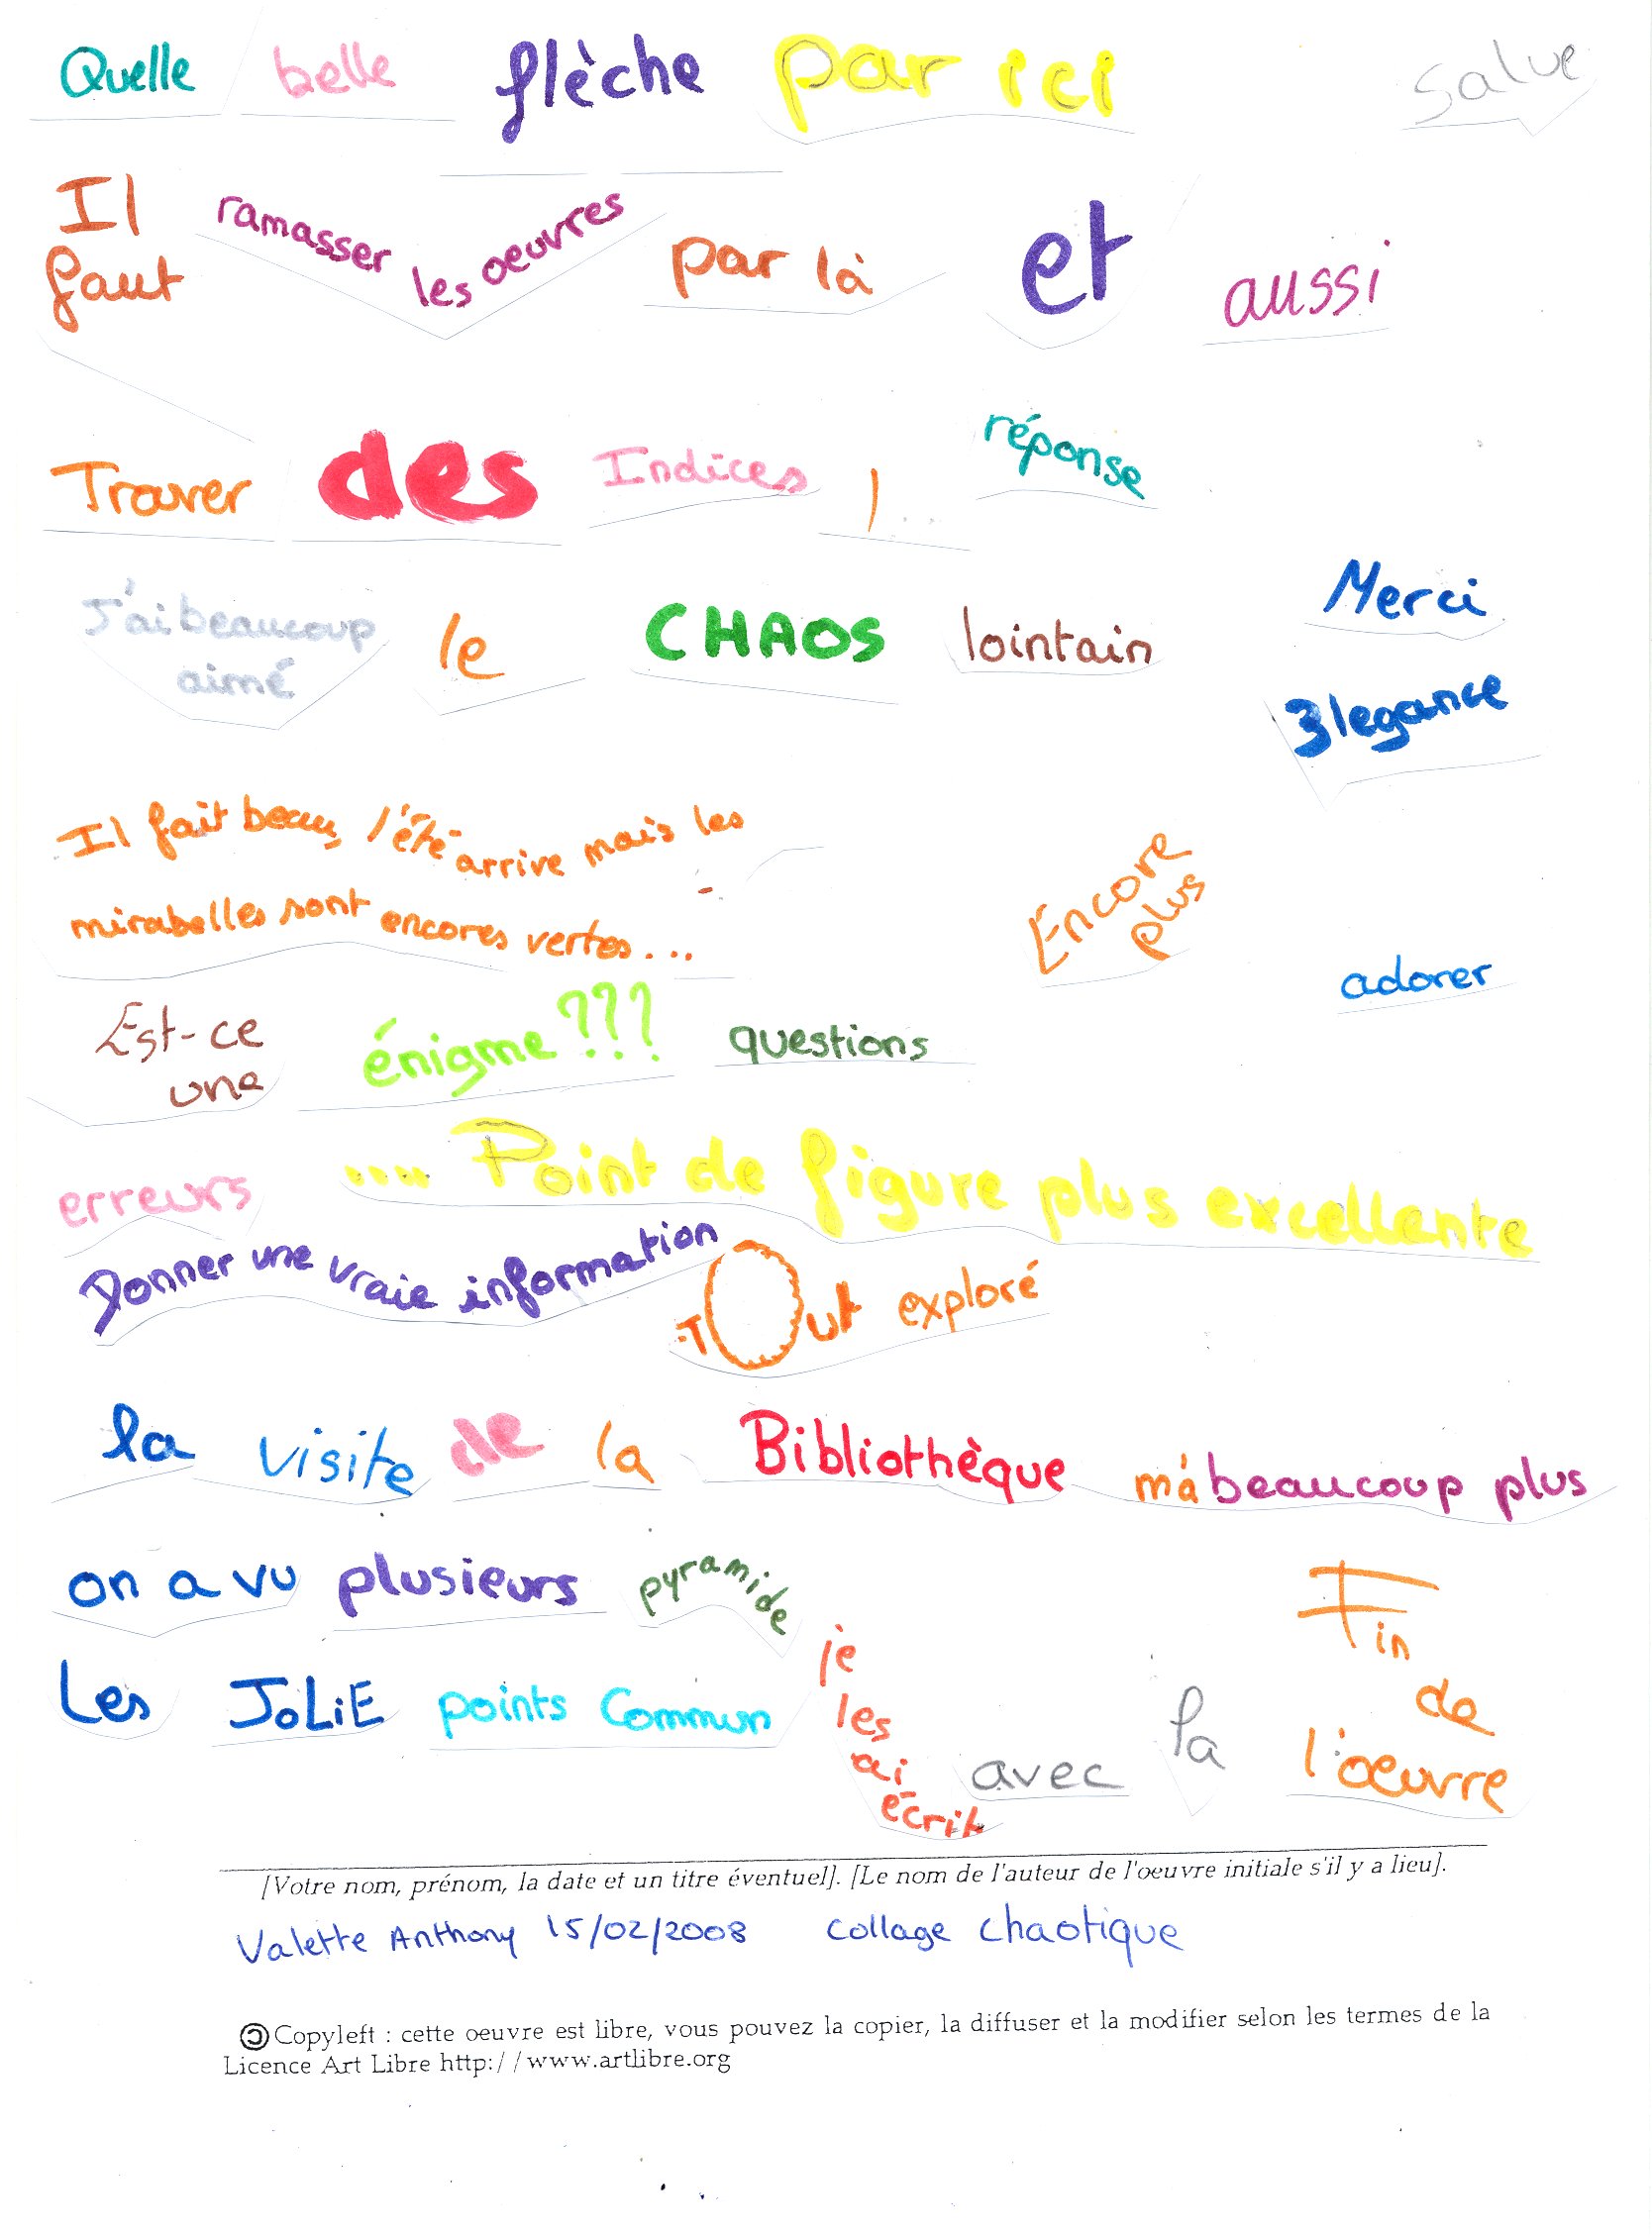 Quelle belle flèche par ici salve
Il faut ramasser les oeuvres par là et aussi
Trouver des Indices ! réponse
J'ai beaucoup aimé le CHAOS lointain Merci
3legance
Il fait beau, l'été arrive mais les
mirabelles sont encores vertes...
Encore plus
adorer
Est-ce une énigme ??? questions
erreurs ..... Point de figure plus excellente
Donner une vraie information
TOut exploré
la visite de la Bibliothèque m'a beaucoup plus
on a vu plusieurs pyramide
Les JOLiE points Commun
je les ai écrit avec la
Fin de l'oeuvre
[Votre nom, prénom, la date et un titre éventuel]. [Le nom de l'auteur de l'oeuvre initiale s'il y a lieu].
Valette Anthony 15/02/2008 Collage chaotique
Copyleft : cette oeuvre est libre, vous pouvez la copier, la diffuser et la modifier selon les termes de la
Licence Art Libre http://www.artlibre.org